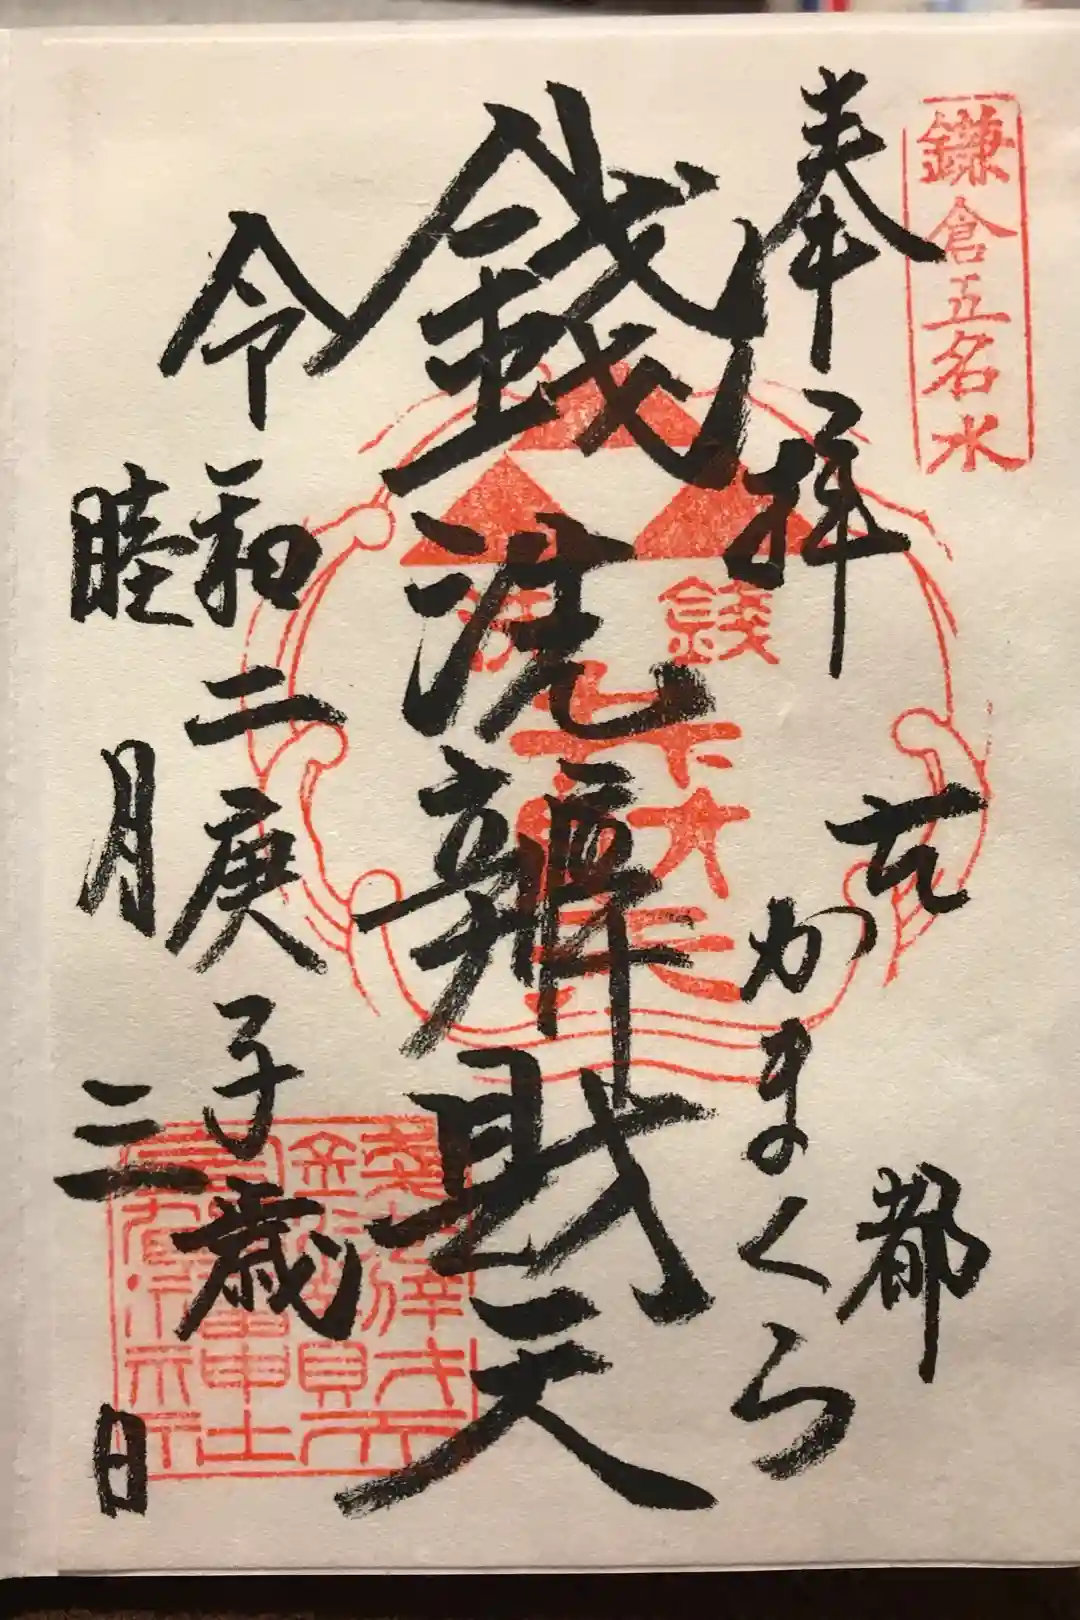 鎌倉五名水
奉拝
古都
かまくら
銭洗辨財天
令和二庚子歳
睦月二三日
銭洗